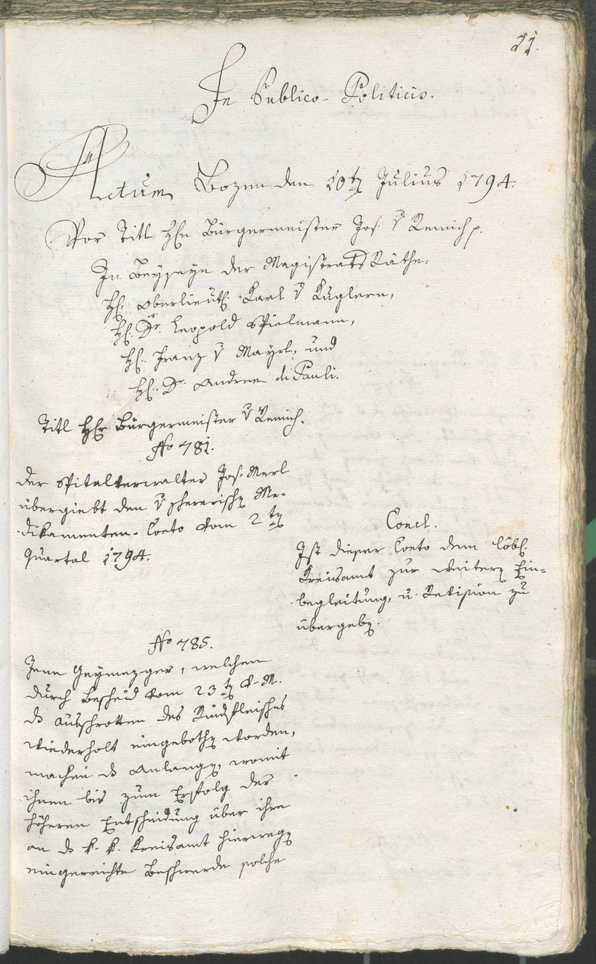 21.
In Publico-Politicis.
Actum Bozen den 10t July Julius 1794.
Vor Titl Hh Bürgermeister Jos. v Remich p.
In Beyseyn der Magistrats Räthe,
Hh. Oberlieut. Karl v Kuglern,
Hh. Dr. Leopold Spielmann,
Hh. Franz v Mayrl, und
Hh. Dr. Andreen di Pauli.
Titl Hh Bürgermeister v Remich.
No 781.
Der Spitalverwalter Jos. Merl
übergiebt den v schererischen Me-
dikamenten-Conto vom 2ten
Quartal 1794.
Concl.
Ist dieser Conto dem löbl.
Kreisamt zur weitern Ein-
begleitung, u. Revision zu
übergeben.
No 785.
Jene Geymezger, welchen
durch Bescheid vom 23ten v. M.
das Ausschrotten des Rindfleisches
wiederholt eingebothen worden,
machen das Anlangen, womit
ihnen bis zum Erfolg der
höheren Entscheidung über ihre
an das k. k. Kreisamt hierwegen
eingereichte Beschwerde solche